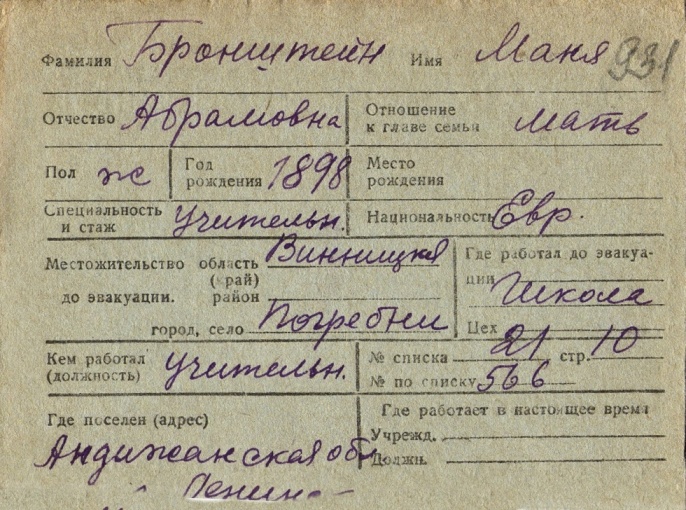 Фамилия Бронштейн Имя Маня 931
Отчество Абрамовна Отношение к главе семьи мать
Пол ж Год рождения 1898 Место рождения
Специальность и стаж учительн. Национальность Евр.
Местожительство область Винницкая Где работал до эвакуа-
(край) ции Школа
до эвакуации. район
город, село Погребни Цех
Кем работал (должность) учительн. № списка 21 стр. 10
№ по списку 566
Где поселен (адрес) Где работает в настоящее время
Учрежд.
Андижанская обл. Должн.
Ленин-